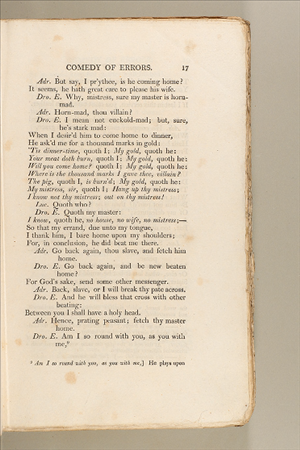 COMEDY OF ERRORS. 17
Adr. But say, I pr'ythee, is he coming home?
It seems, he hath great care to please his wife.
Dro. E. Why, mistress, sure my master is horn-
mad.
Adr. Horn-mad, thou villain?
Dro. E. I mean not cuckold-mad; but, sure,
he's stark mad:
When I desir'd him to come home to dinner,
He ask'd me for a thousand marks in gold:
'Tis dinner-time, quoth I; My gold, quoth he:
Your meat doth burn, quoth I; My gold, quoth he:
Will you come home? quoth I; My gold, quoth he:
Where is the thousand marks I gave thee, villain?
The pig, quoth I, is burn'd; My gold, quoth he:
My mistress, sir, quoth I; Hang up thy mistress;
I know not thy mistress; out on thy mistress!
Luc. Quoth who?
Dro. E. Quoth my master:
I know, quoth he, no house, no wife, no mistress;—
So that my errand, due unto my tongue,
I thank him, I bare home upon my shoulders;
For, in conclusion, he did beat me there.
Adr. Go back again, thou slave, and fetch him
home.
Dro. E. Go back again, and be new beaten
home?
For God's sake, send some other messenger.
Adr. Back, slave, or I will break thy pate across.
Dro. E. And he will bless that cross with other
beating:
Between you I shall have a holy head.
Adr. Hence, prating peasant; fetch thy master
home.
Dro. E. Am I so round with you, as you with
me,
Am I so round with you, as you with me,] He plays upon